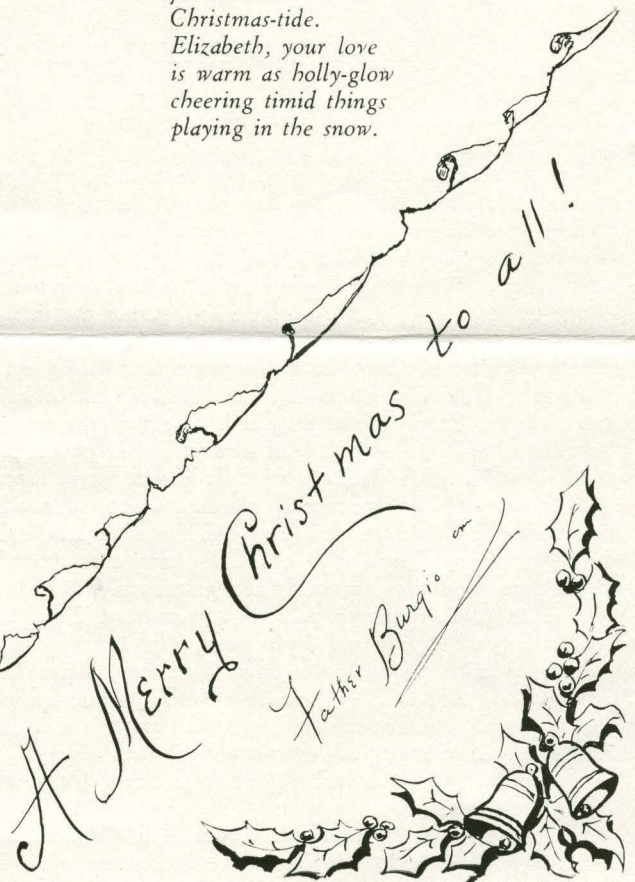 Christmas-tide.
Elizabeth, your love
is warm as holly-glow
cheering timid things
playing in the snow.
A Merry Christmas to all!
Father Burgio cm